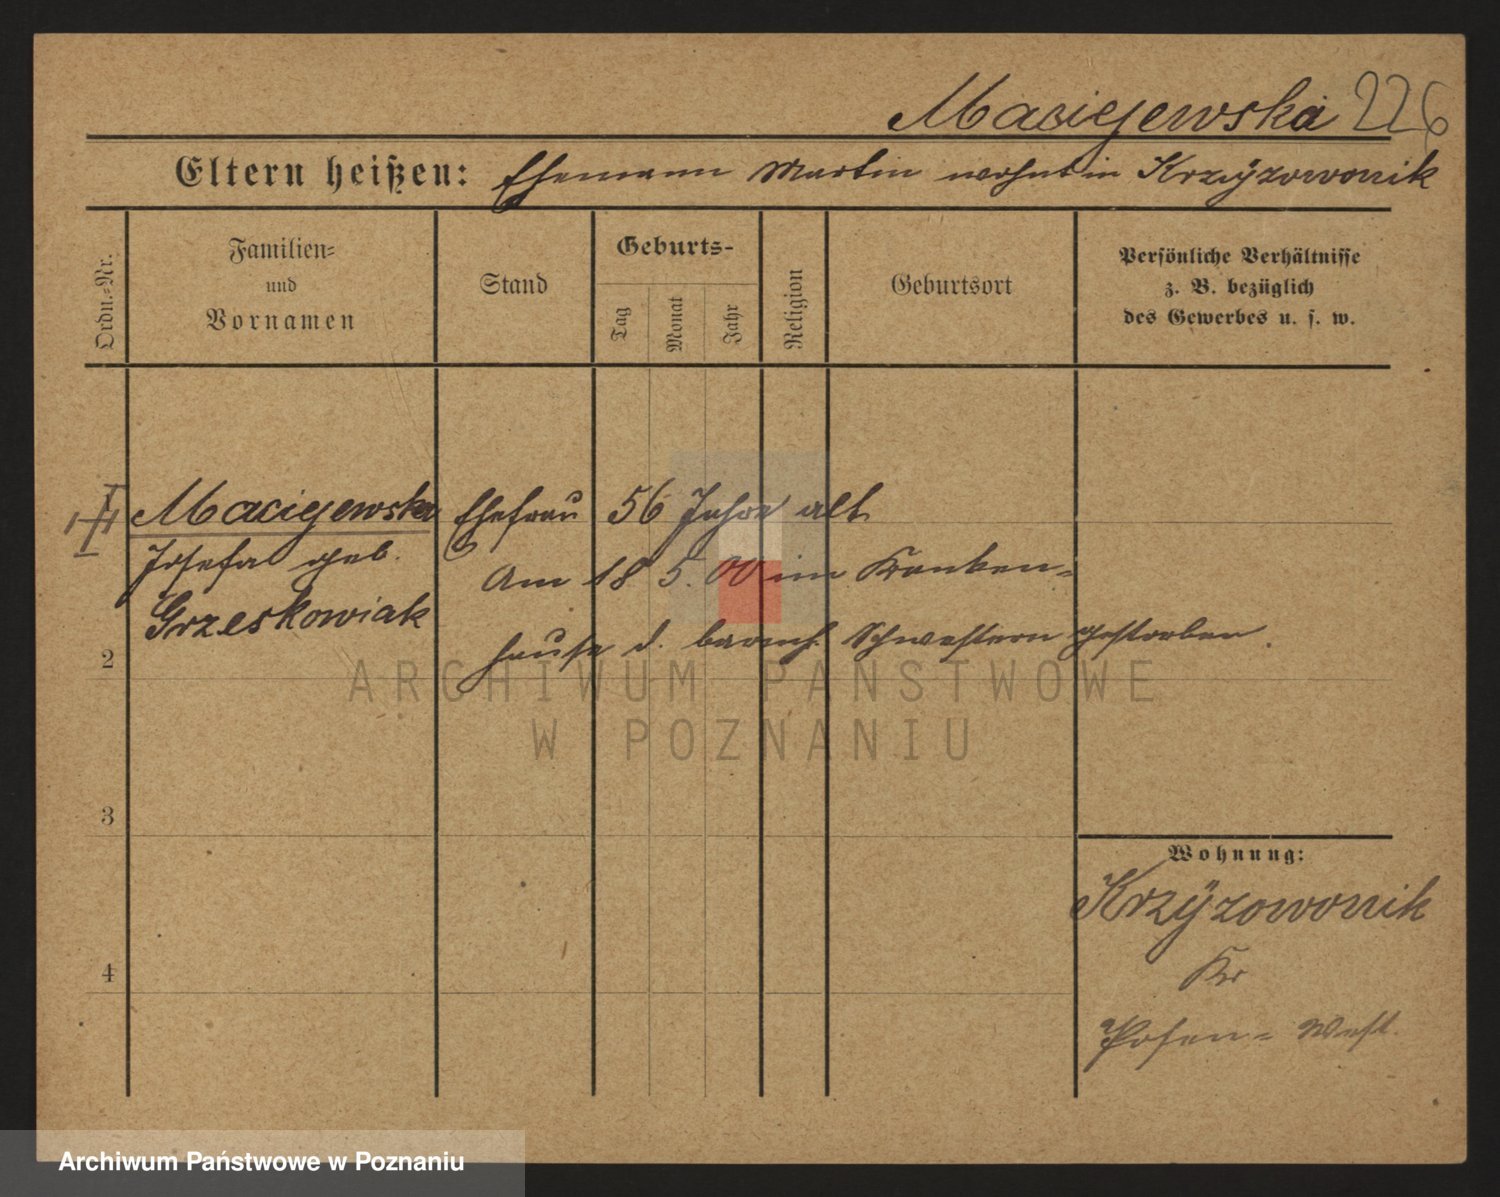 Maciejewska 226
Eltern heißen: Ehemann Martin wohnt in Krzÿzowonik
Ordn.-Nr.
Familien-
und
Vornamen
Stand
Geburts-
Tag
Monat
Jahr
Religion
Geburtsort
Persönliche Verhältnisse
z. B. bezüglich
des Gewerbes u. s. w.
Maciejewska Ehefrau 56 Jahre alt
Josefa geb. Am 18 5. 00 im Kranken-
Grzeskowiak
hause d. barmh. Schwestern gestorben.
2
ARCHIWUM PAŃSTWOWE
W POZNANIU
3
Wohnung:
Krzÿzowonik
4
Kr
Posen-West.
Archiwum Państwowe w Poznaniu